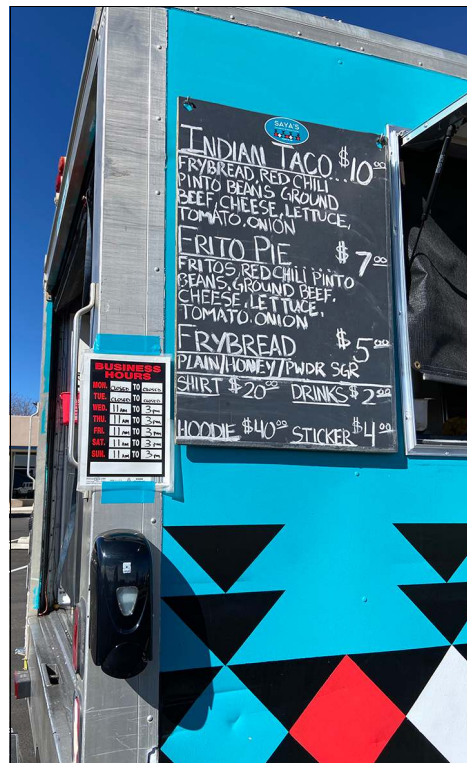 SAYA'S
INDIAN TACO $10.00
FRYBREAD, RED CHILI
PINTO BEANS, GROUND
BEEF, CHEESE, LETTUCE,
TOMATO, ONION
FRITO PIE $7.00
FRITOS, RED CHILI PINTO
BEANS, GROUND BEEF.
CHEESE, LETTUCE,
TOMATO. ONION
FRYBREAD $5.00
PLAIN/HONEY/PWDR SGR
SHIRT $20.00 DRINKS $2.00
HOODIE $40.00 STICKER $4.00
BUSINESS
HOURS
MON. CLOSED TO CLOSED
TUE. CLOSED TO CLOSED
WED. 11 AM TO 3 PM
THU. 11 AM TO 3 PM
FRI. 11 AM TO 3 PM
SAT. 11 AM TO 3 PM
SUN. 11 AM TO 3 PM